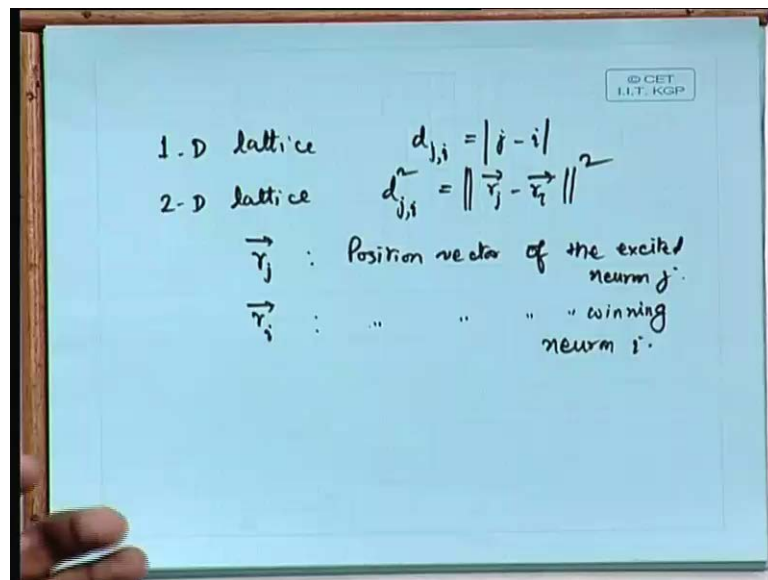 © CET
I.I.T. KGP
1-D lattice d_{j,i} = |j - i|
2-D lattice d²_{j,i} = ||\vec{r_j} - \vec{r_i}||²
\vec{r_j} : Position vector of the excited
neuron j.
\vec{r_i} : " " " " winning
neuron i.